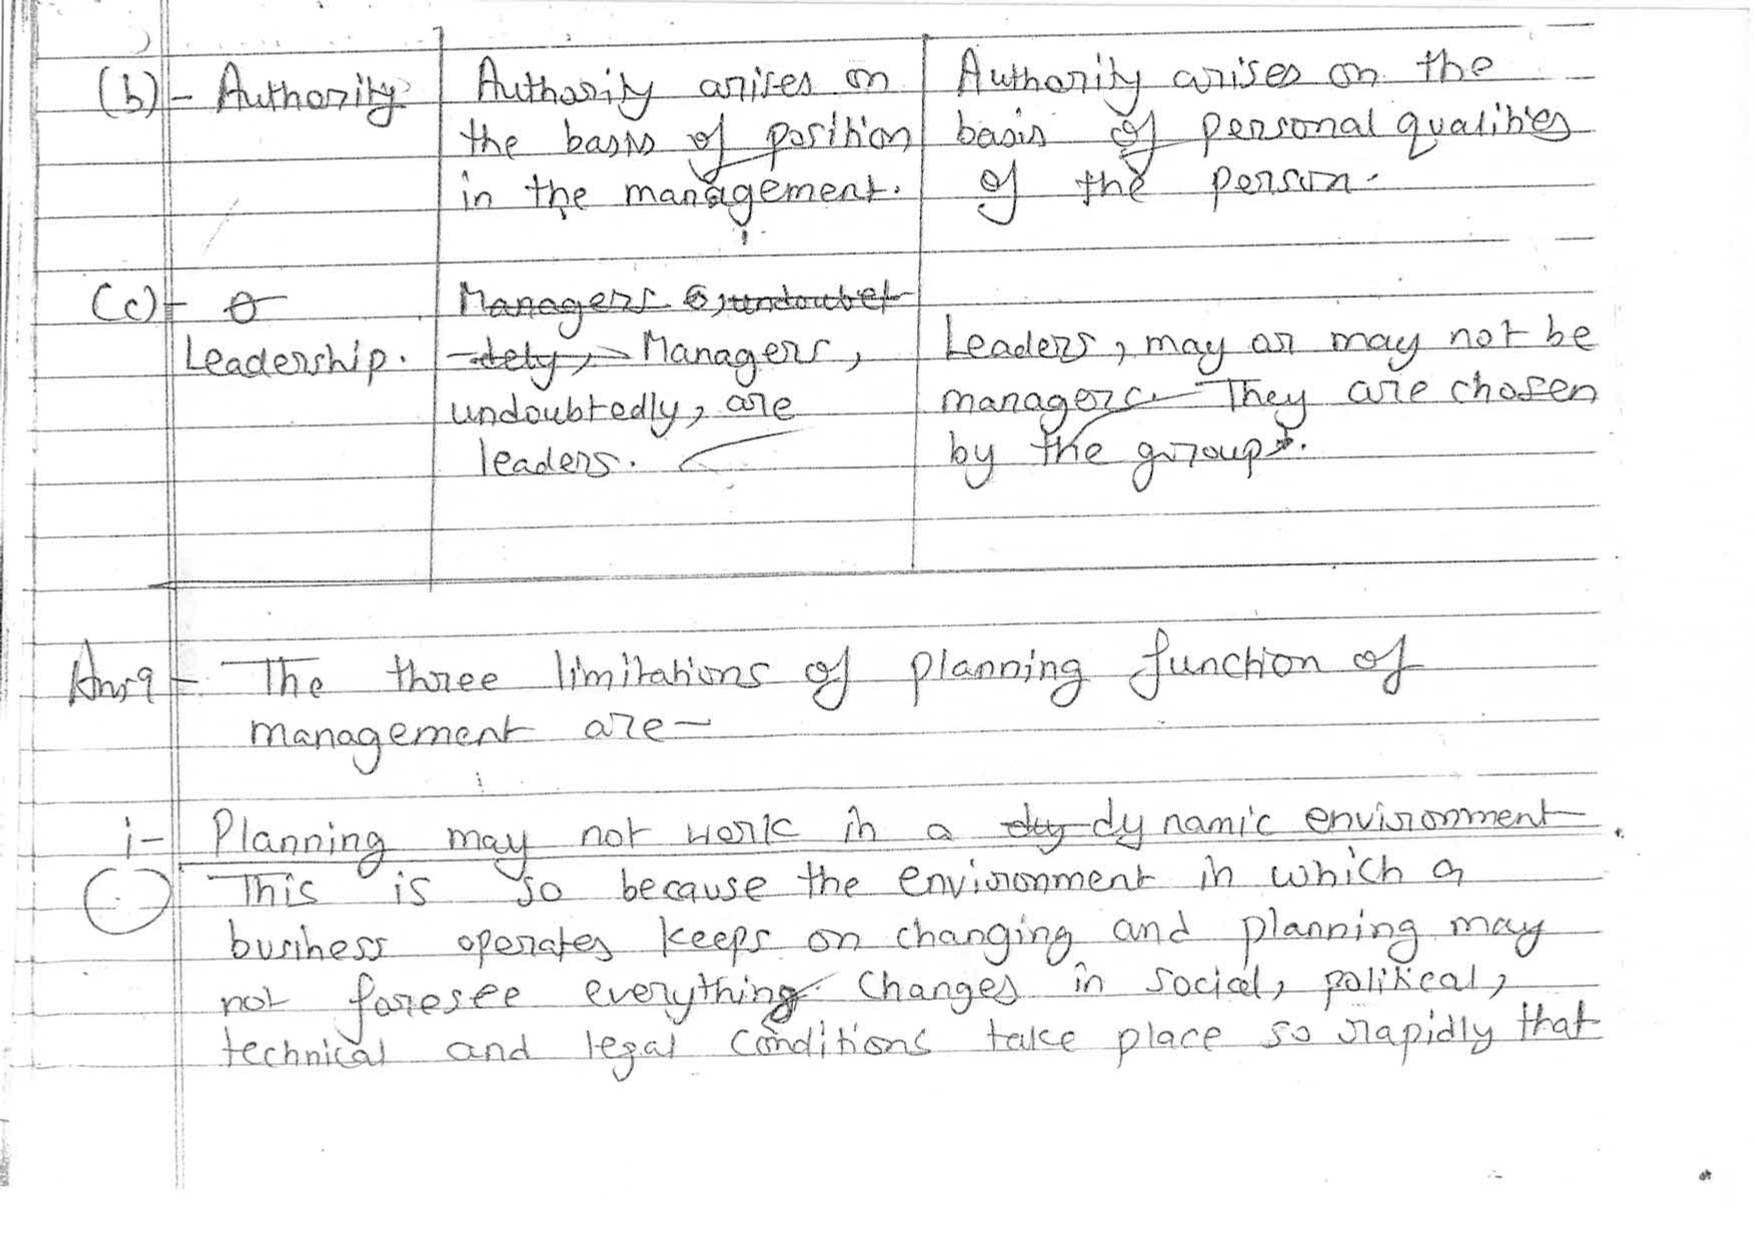 (b)- Authority
Authority arises on
the basis of position
in the management.
Authority arises on the
basis of personal qualities
of the person.
(c)-
Leadership.
Managers, undoubet
-dely, Managers,
undoubtedly, are
leaders.
Leaders, may or may not be
managers. They are chosen
by the group.
Ans9- The three limitations of planning function of
management are-
i- Planning may not work in a dy dynamic environment
This is so because the environment in which a
business operates keeps on changing and planning may
not foresee everything. Changes in social, political,
technical and legal conditions take place so rapidly that